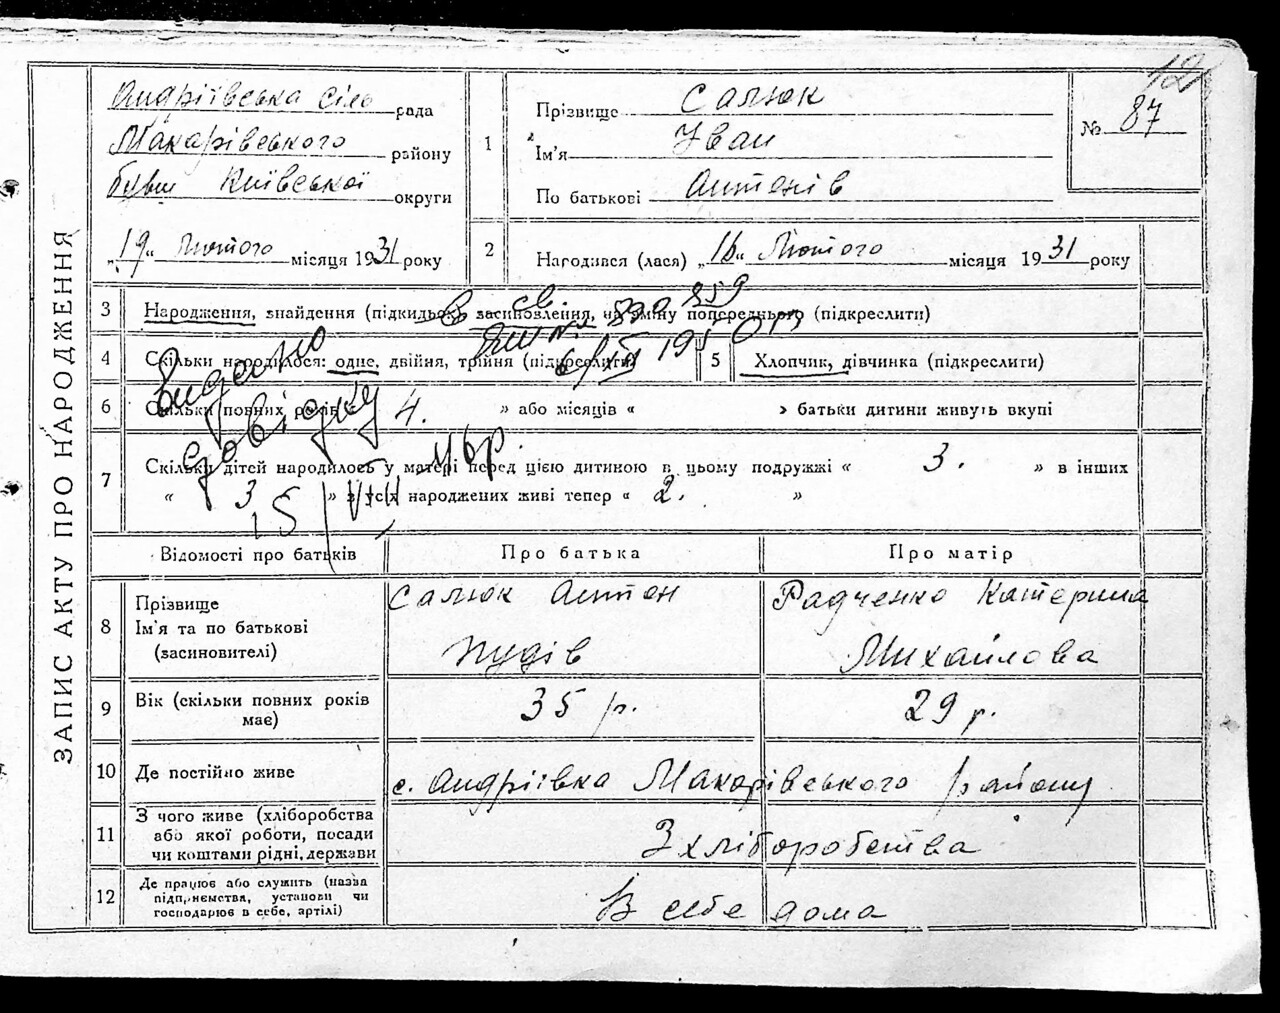 ЗАПИС АКТУ ПРО НАРОДЖЕННЯ
Андріївська сіль рада
Макарівського району
бувш Київської округи
„19“ Лютого місяця 1931 року
1
Прізвище Салюк
Ім'я Іван
По батькові Антонів
№ 87
42
2 Народився (лася) „16“ Лютого місяця 1931 року
3 Народження, знайдення (підкидьок) засиновлення, на зміну попереднього (підкреслити)
4 Скільки народилося: одне, двійня, трійня (підкреслити)
5 Хлопчик, дівчинка (підкреслити)
6 Скільки повних років « 4. » або місяців « » батьки дитини живуть вкупі
Видано
довідку
7 Скільки дітей народилось у матері перед цією дитиною в цьому подружжі « 3. » в інших
« 3 » з усіх народжених живі тепер « 2. »
15/VII 46р.
Відомості про батьків Про батька Про матір
8 Прізвище
Ім'я та по батькові
(засиновителі)
Салюк Антон
Нудів
Радченко Катерина
Михайлова
9 Вік (скільки повних років має) 35 р. 29 р.
10 Де постійно живе с. Андріївка Макарівського району
11 З чого живе (хліборобства
або якої роботи, посади
чи коштами рідні, держави
З хліборобства
12 Де працює або служить (назва
підприємства, установи чи
господарює в себе, артілі)
В себе дома